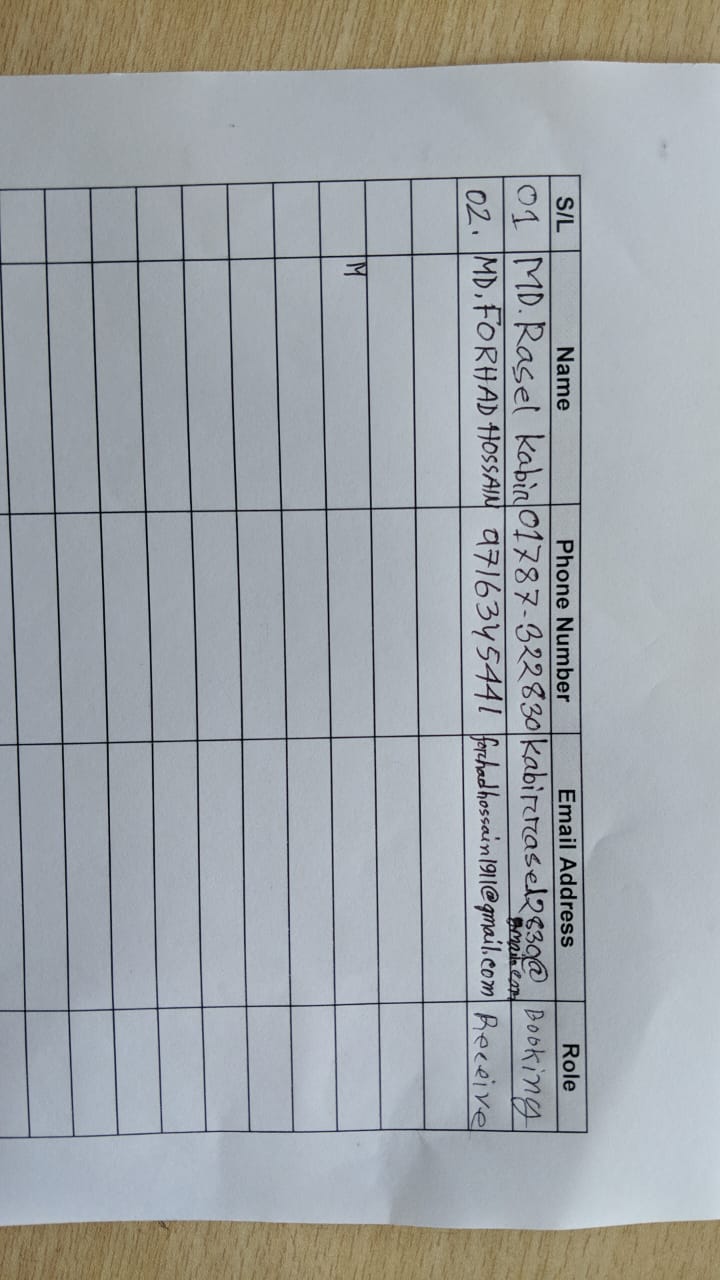 S/L Name Phone Number Email Address Role
01 MD. Rasel Kabir 01787-322830 kabirrasel2830@gmail.com Booking
02. MD. FORHAD HOSSAIN 9716345441 forhadhossain1911@gmail.com Receive
M